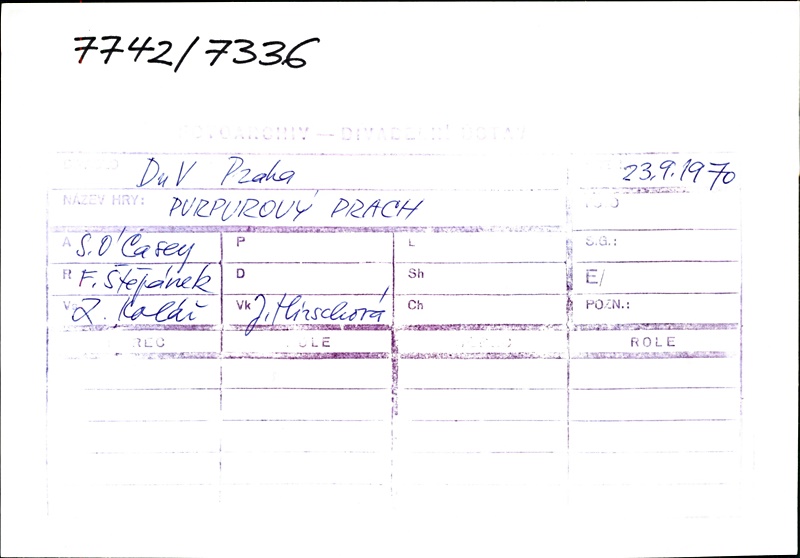 7742/7336
FOTOARCHIV — DIVADELNÍ ÚSTAV
DnV Praha 23.9.1970
NÁZEV HRY: PURPUROVÝ PRACH
A S. O'Casey P L S.G.:
R F. Štěpánek D Sh E/
V Z. Kolář Vk J. Hirschová Ch POZN.:
HEREC ROLE HEREC ROLE